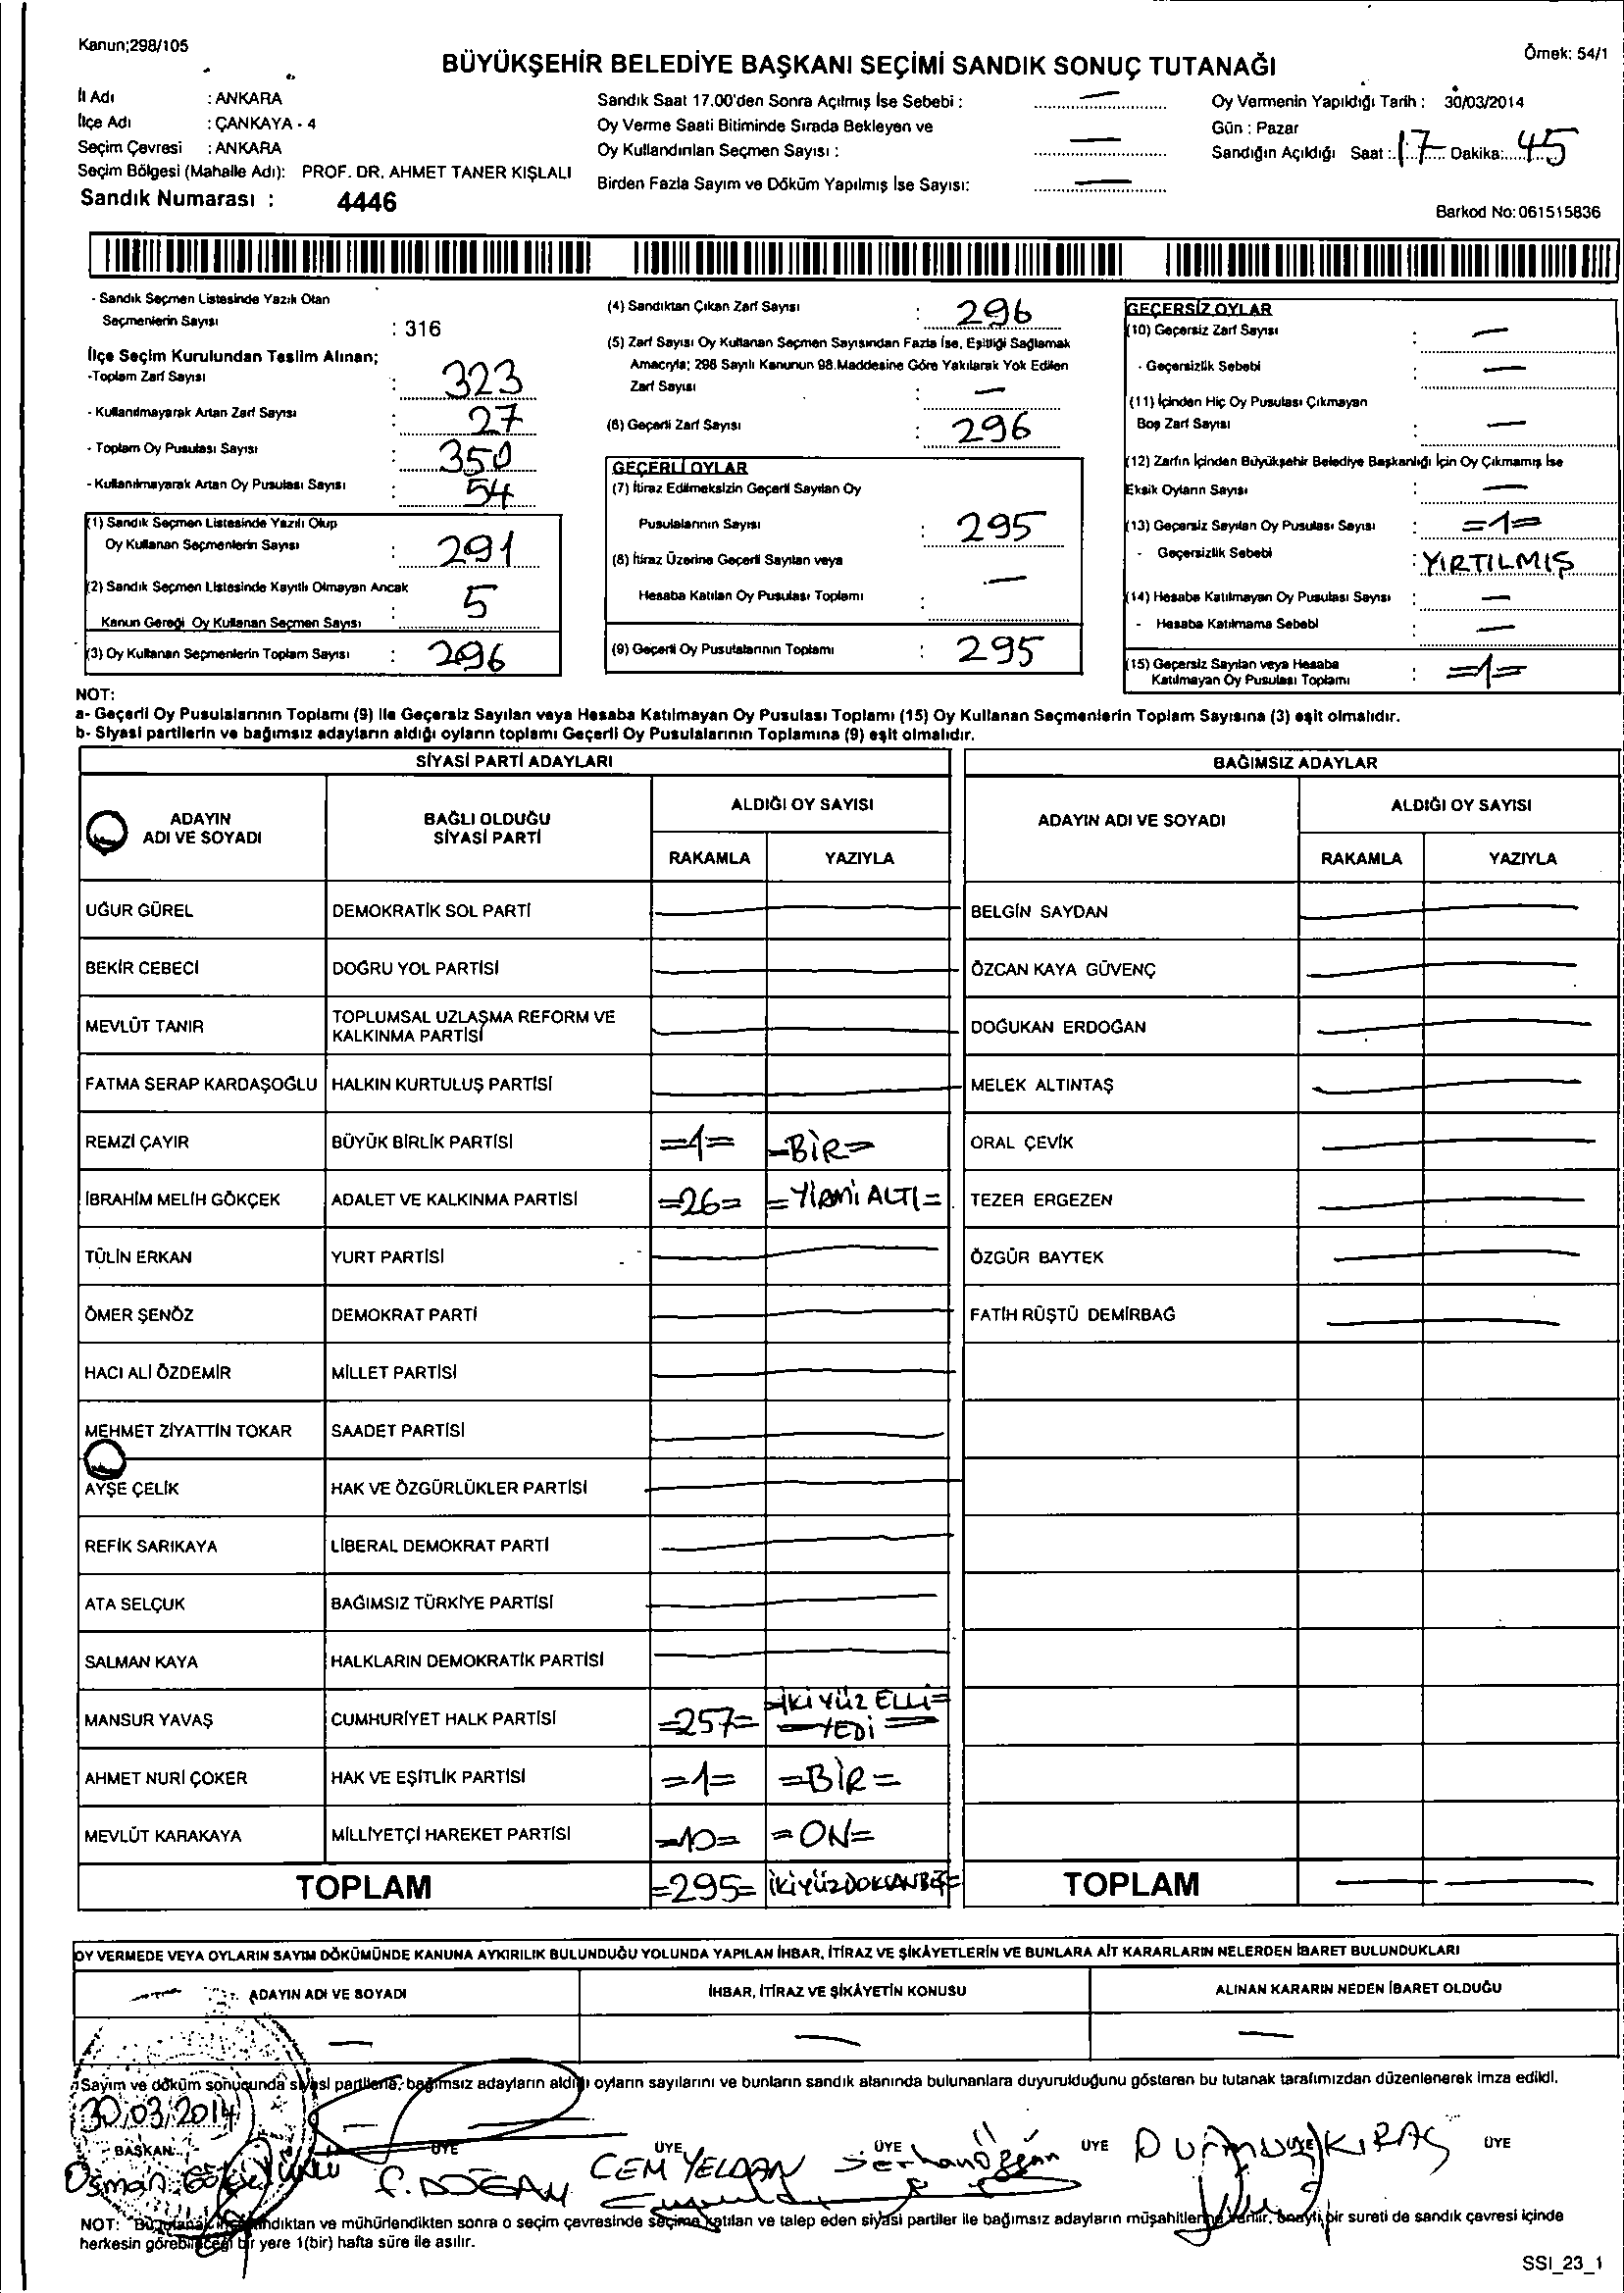 Kanun;298/105
BÜYÜKŞEHİR BELEDİYE BAŞKANI SEÇİMİ SANDIK SONUÇ TUTANAĞI
Örnek: 54/1
İl Adı : ANKARA
İlçe Adı : ÇANKAYA - 4
Seçim Çevresi : ANKARA
Seçim Bölgesi (Mahalle Adı): PROF. DR. AHMET TANER KIŞLALI
Sandık Numarası : 4446
Sandık Saat 17.00'den Sonra Açılmış İse Sebebi : —
Oy Verme Saati Bitiminde Sırada Bekleyen ve
Oy Kullandırılan Seçmen Sayısı : —
Birden Fazla Sayım ve Döküm Yapılmış İse Sayısı: —
Oy Vermenin Yapıldığı Tarih : 30/03/2014
Gün : Pazar
Sandığın Açıldığı Saat : 17 Dakika: 45
Barkod No: 061515836
- Sandık Seçmen Listesinde Yazılı Olan
Seçmenlerin Sayısı : 316
İlçe Seçim Kurulundan Teslim Alınan;
-Toplam Zarf Sayısı : 323
- Kullanılmayarak Artan Zarf Sayısı : 27
- Toplam Oy Pusulası Sayısı : 350
- Kullanılmayarak Artan Oy Pusulası Sayısı : 54
(1) Sandık Seçmen Listesinde Yazılı Olup
Oy Kullanan Seçmenlerin Sayısı : 291
(2) Sandık Seçmen Listesinde Kayıtlı Olmayan Ancak
Kanun Gereği Oy Kullanan Seçmen Sayısı : 5
(3) Oy Kullanan Seçmenlerin Toplam Sayısı : 296
(4) Sandıktan Çıkan Zarf Sayısı : 296
(5) Zarf Sayısı Oy Kullanan Seçmen Sayısından Fazla İse, Eşitliği Sağlamak
Amacıyla; 298 Sayılı Kanunun 98.Maddesine Göre Yakılarak Yok Edilen
Zarf Sayısı : —
(6) Geçerli Zarf Sayısı : 296
GEÇERLİ OYLAR
(7) İtiraz Edilmeksizin Geçerli Sayılan Oy
Pusulalarının Sayısı : 295
(8) İtiraz Üzerine Geçerli Sayılan veya
Hesaba Katılan Oy Pusulası Toplamı : —
(9) Geçerli Oy Pusulalarının Toplamı : 295
GEÇERSİZ OYLAR
(10) Geçersiz Zarf Sayısı : —
- Geçersizlik Sebebi : —
(11) İçinden Hiç Oy Pusulası Çıkmayan
Boş Zarf Sayısı : —
(12) Zarfın İçinden Büyükşehir Belediye Başkanlığı İçin Oy Çıkmamış İse
Eksik Oyların Sayısı : —
(13) Geçersiz Sayılan Oy Pusulası Sayısı : =1=
- Geçersizlik Sebebi : YIRTILMIŞ
(14) Hesaba Katılmayan Oy Pusulası Sayısı : —
- Hesaba Katılmama Sebebi : —
(15) Geçersiz Sayılan veya Hesaba
Katılmayan Oy Pusulası Toplamı : =1=
NOT:
a- Geçerli Oy Pusulalarının Toplamı (9) ile Geçersiz Sayılan veya Hesaba Katılmayan Oy Pusulası Toplamı (15) Oy Kullanan Seçmenlerin Toplam Sayısına (3) eşit olmalıdır.
b- Siyasi partilerin ve bağımsız adayların aldığı oyların toplamı Geçerli Oy Pusulalarının Toplamına (9) eşit olmalıdır.
SİYASİ PARTİ ADAYLARI BAĞIMSIZ ADAYLAR
ADAYIN ADI VE SOYADI BAĞLI OLDUĞU SİYASİ PARTİ ALDIĞI OY SAYISI ADAYIN ADI VE SOYADI ALDIĞI OY SAYISI
RAKAMLA YAZIYLA RAKAMLA YAZIYLA
UĞUR GÜREL DEMOKRATİK SOL PARTİ — BELGİN SAYDAN —
BEKİR CEBECİ DOĞRU YOL PARTİSİ — ÖZCAN KAYA GÜVENÇ —
MEVLÜT TANIR TOPLUMSAL UZLAŞMA REFORM VE KALKINMA PARTİSİ — DOĞUKAN ERDOĞAN —
FATMA SERAP KARDAŞOĞLU HALKIN KURTULUŞ PARTİSİ — MELEK ALTINTAŞ —
REMZİ ÇAYIR BÜYÜK BİRLİK PARTİSİ =1= =BİR= ORAL ÇEVİK —
İBRAHİM MELİH GÖKÇEK ADALET VE KALKINMA PARTİSİ =26= =YİRMİ ALTI= TEZER ERGEZEN —
TÜLİN ERKAN YURT PARTİSİ — ÖZGÜR BAYTEK —
ÖMER ŞENÖZ DEMOKRAT PARTİ — FATİH RÜŞTÜ DEMİRBAĞ —
HACI ALİ ÖZDEMİR MİLLET PARTİSİ —
MEHMET ZİYATTİN TOKAR SAADET PARTİSİ —
AYŞE ÇELİK HAK VE ÖZGÜRLÜKLER PARTİSİ —
REFİK SARIKAYA LİBERAL DEMOKRAT PARTİ —
ATA SELÇUK BAĞIMSIZ TÜRKİYE PARTİSİ —
SALMAN KAYA HALKLARIN DEMOKRATİK PARTİSİ —
MANSUR YAVAŞ CUMHURİYET HALK PARTİSİ =257= =İKİ YÜZ ELLİ= =YEDİ=
AHMET NURİ ÇOKER HAK VE EŞİTLİK PARTİSİ =1= =BİR=
MEVLÜT KARAKAYA MİLLİYETÇİ HAREKET PARTİSİ =10= =ON=
TOPLAM =295= İKİYÜZDOKSANBEŞ= TOPLAM — —
OY VERMEDE VEYA OYLARIN SAYIM DÖKÜMÜNDE KANUNA AYKIRILIK BULUNDUĞU YOLUNDA YAPILAN İHBAR, İTİRAZ VE ŞİKÂYETLERİN VE BUNLARA AİT KARARLARIN NELERDEN İBARET BULUNDUKLARI
ADAYIN ADI VE SOYADI İHBAR, İTİRAZ VE ŞİKÂYETİN KONUSU ALINAN KARARIN NEDEN İBARET OLDUĞU
— — —
Sayım ve döküm sonucunda siyasi partilerle, bağımsız adayların aldığı oyların sayılarını ve bunların sandık alanında bulunanlara duyurulduğunu gösteren bu tutanak tarafımızdan düzenlenerek imza edildi.
30/03/2014
BAŞKAN ÜYE ÜYE ÜYE ÜYE ÜYE ÜYE
Osman F. DOĞAN CEM YELDAN Serhan Özgün DURMUŞ KIRAÇ
NOT: Bu tutanak imzalandıktan ve mühürlendikten sonra o seçim çevresinde seçime katılan ve talep eden siyasi partiler ile bağımsız adayların müşahitlerine verilir, onaylı bir sureti de sandık çevresi içinde
herkesin görebileceği bir yere 1(bir) hafta süre ile asılır.
SSI_23_1